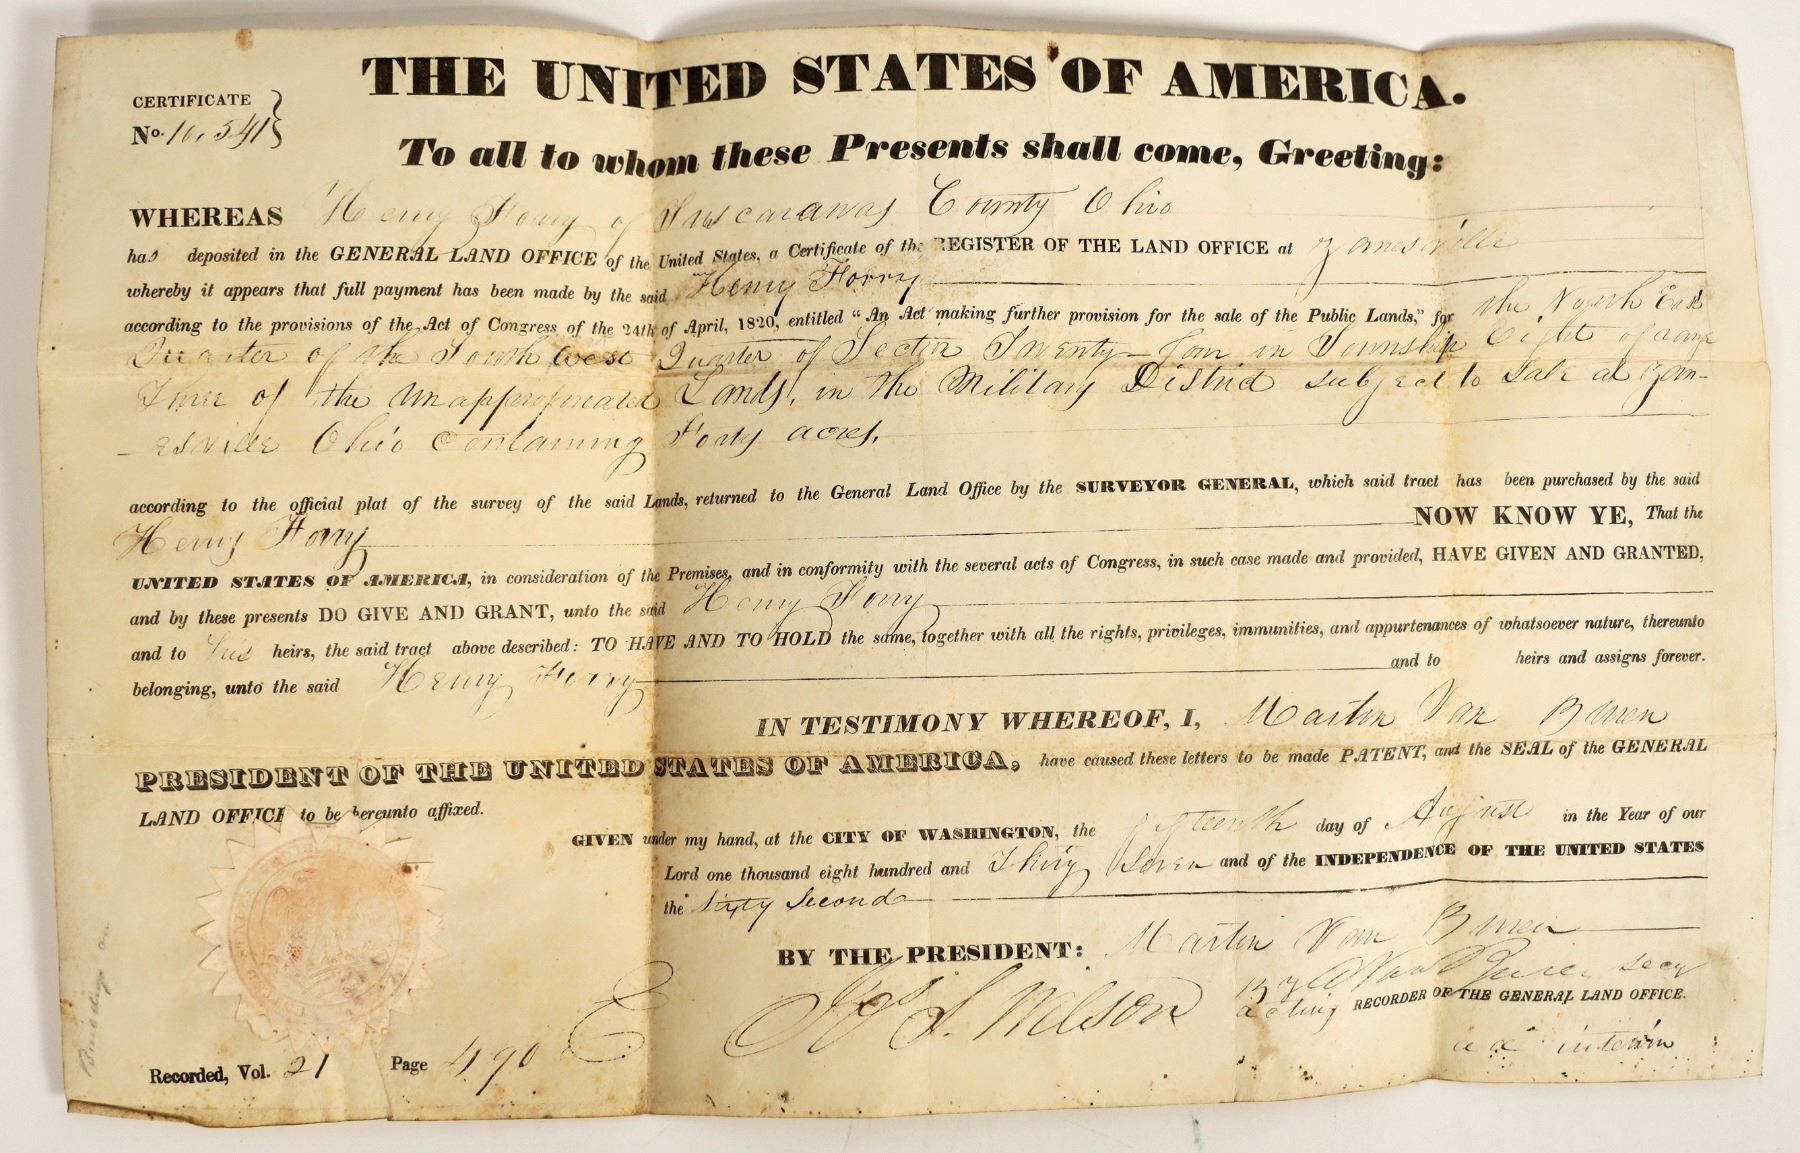 THE UNITED STATES OF AMERICA.
CERTIFICATE
No. 10,541
To all to whom these Presents shall come, Greeting:
WHEREAS Henry Forry of Tuscarawas County Ohio
has deposited in the GENERAL LAND OFFICE of the United States, a Certificate of the REGISTER OF THE LAND OFFICE at Zanesville
whereby it appears that full payment has been made by the said Henry Forry
according to the provisions of the Act of Congress of the 24th of April, 1820, entitled "An Act making further provision for the sale of the Public Lands," for the North East
Quarter of the South West Quarter of Section Twenty-four in Township Eight of range
Three of the unappropriated Lands, in the Military District subject to sale at Zan-
-esville Ohio Containing Forty acres.
according to the official plat of the survey of the said Lands, returned to the General Land Office by the SURVEYOR GENERAL, which said tract has been purchased by the said
Henry Forry NOW KNOW YE, That the
UNITED STATES OF AMERICA, in consideration of the Premises, and in conformity with the several acts of Congress, in such case made and provided, HAVE GIVEN AND GRANTED,
and by these presents DO GIVE AND GRANT, unto the said Henry Forry
and to his heirs, the said tract above described: TO HAVE AND TO HOLD the same, together with all the rights, privileges, immunities, and appurtenances of whatsoever nature, thereunto
belonging, unto the said Henry Forry and to heirs and assigns forever.
IN TESTIMONY WHEREOF, I, Martin Van Buren
PRESIDENT OF THE UNITED STATES OF AMERICA, have caused these letters to be made PATENT, and the SEAL of the GENERAL
LAND OFFICE to be hereunto affixed.
GIVEN under my hand, at the CITY OF WASHINGTON, the fifteenth day of August in the Year of our
Lord one thousand eight hundred and Thirty Seven and of the INDEPENDENCE OF THE UNITED STATES
the Sixty Second
BY THE PRESIDENT: Martin Van Buren
By A Van Buren Secy
Jos S. Wilson acting RECORDER OF THE GENERAL LAND OFFICE.
ad interim
Recorded, Vol. 21 Page 490